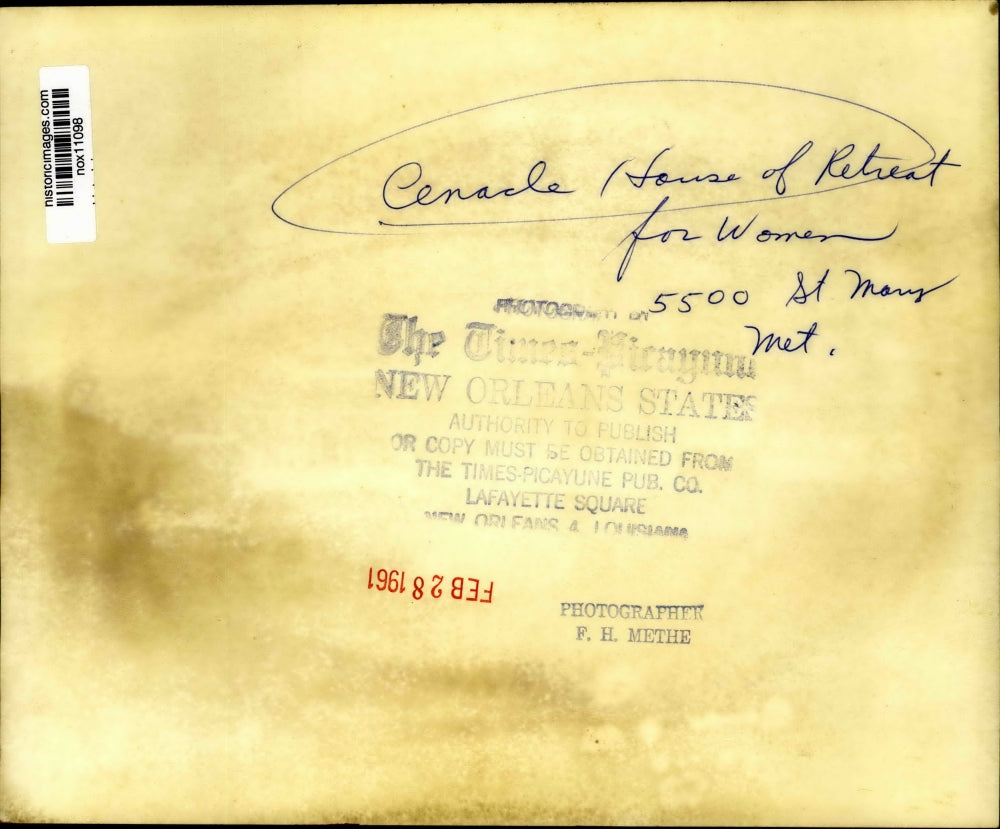 historicimages.com
nox11098
Cenacle House of Retreat
for Women
5500 St Mary
Met.
PHOTOGRAPH BY
The Times-Picayune
NEW ORLEANS STATES
AUTHORITY TO PUBLISH
OR COPY MUST BE OBTAINED FROM
THE TIMES-PICAYUNE PUB. CO.
LAFAYETTE SQUARE
NEW ORLEANS 4, LOUISIANA
FEB 28 1961
PHOTOGRAPHER
F. H. METHE